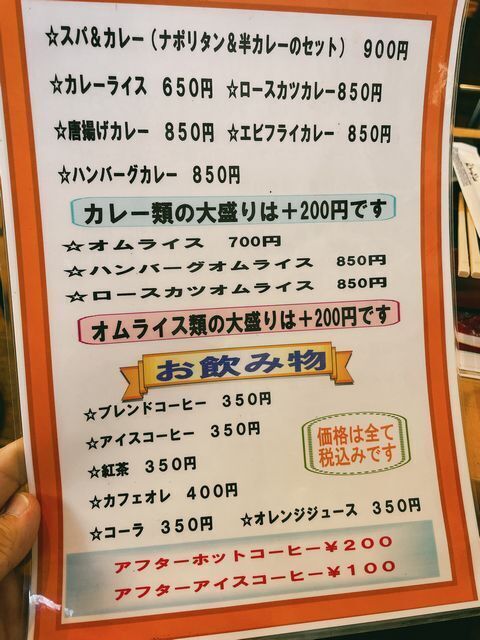 ☆スパ&カレー(ナポリタン&半カレーのセット) 900円
☆カレーライス 650円 ☆ロースカツカレー850円
☆唐揚げカレー 850円 ☆エビフライカレー 850円
☆ハンバーグカレー 850円
カレー類の大盛りは+200円です
☆オムライス 700円
☆ハンバーグオムライス 850円
☆ロースカツオムライス 850円
オムライス類の大盛りは+200円です
お飲み物
☆ブレンドコーヒー 350円
☆アイスコーヒー 350円
☆紅茶 350円
☆カフェオレ 400円
☆コーラ 350円 ☆オレンジジュース 350円
価格は全て
税込みです
アフターホットコーヒー¥200
アフターアイスコーヒー¥100